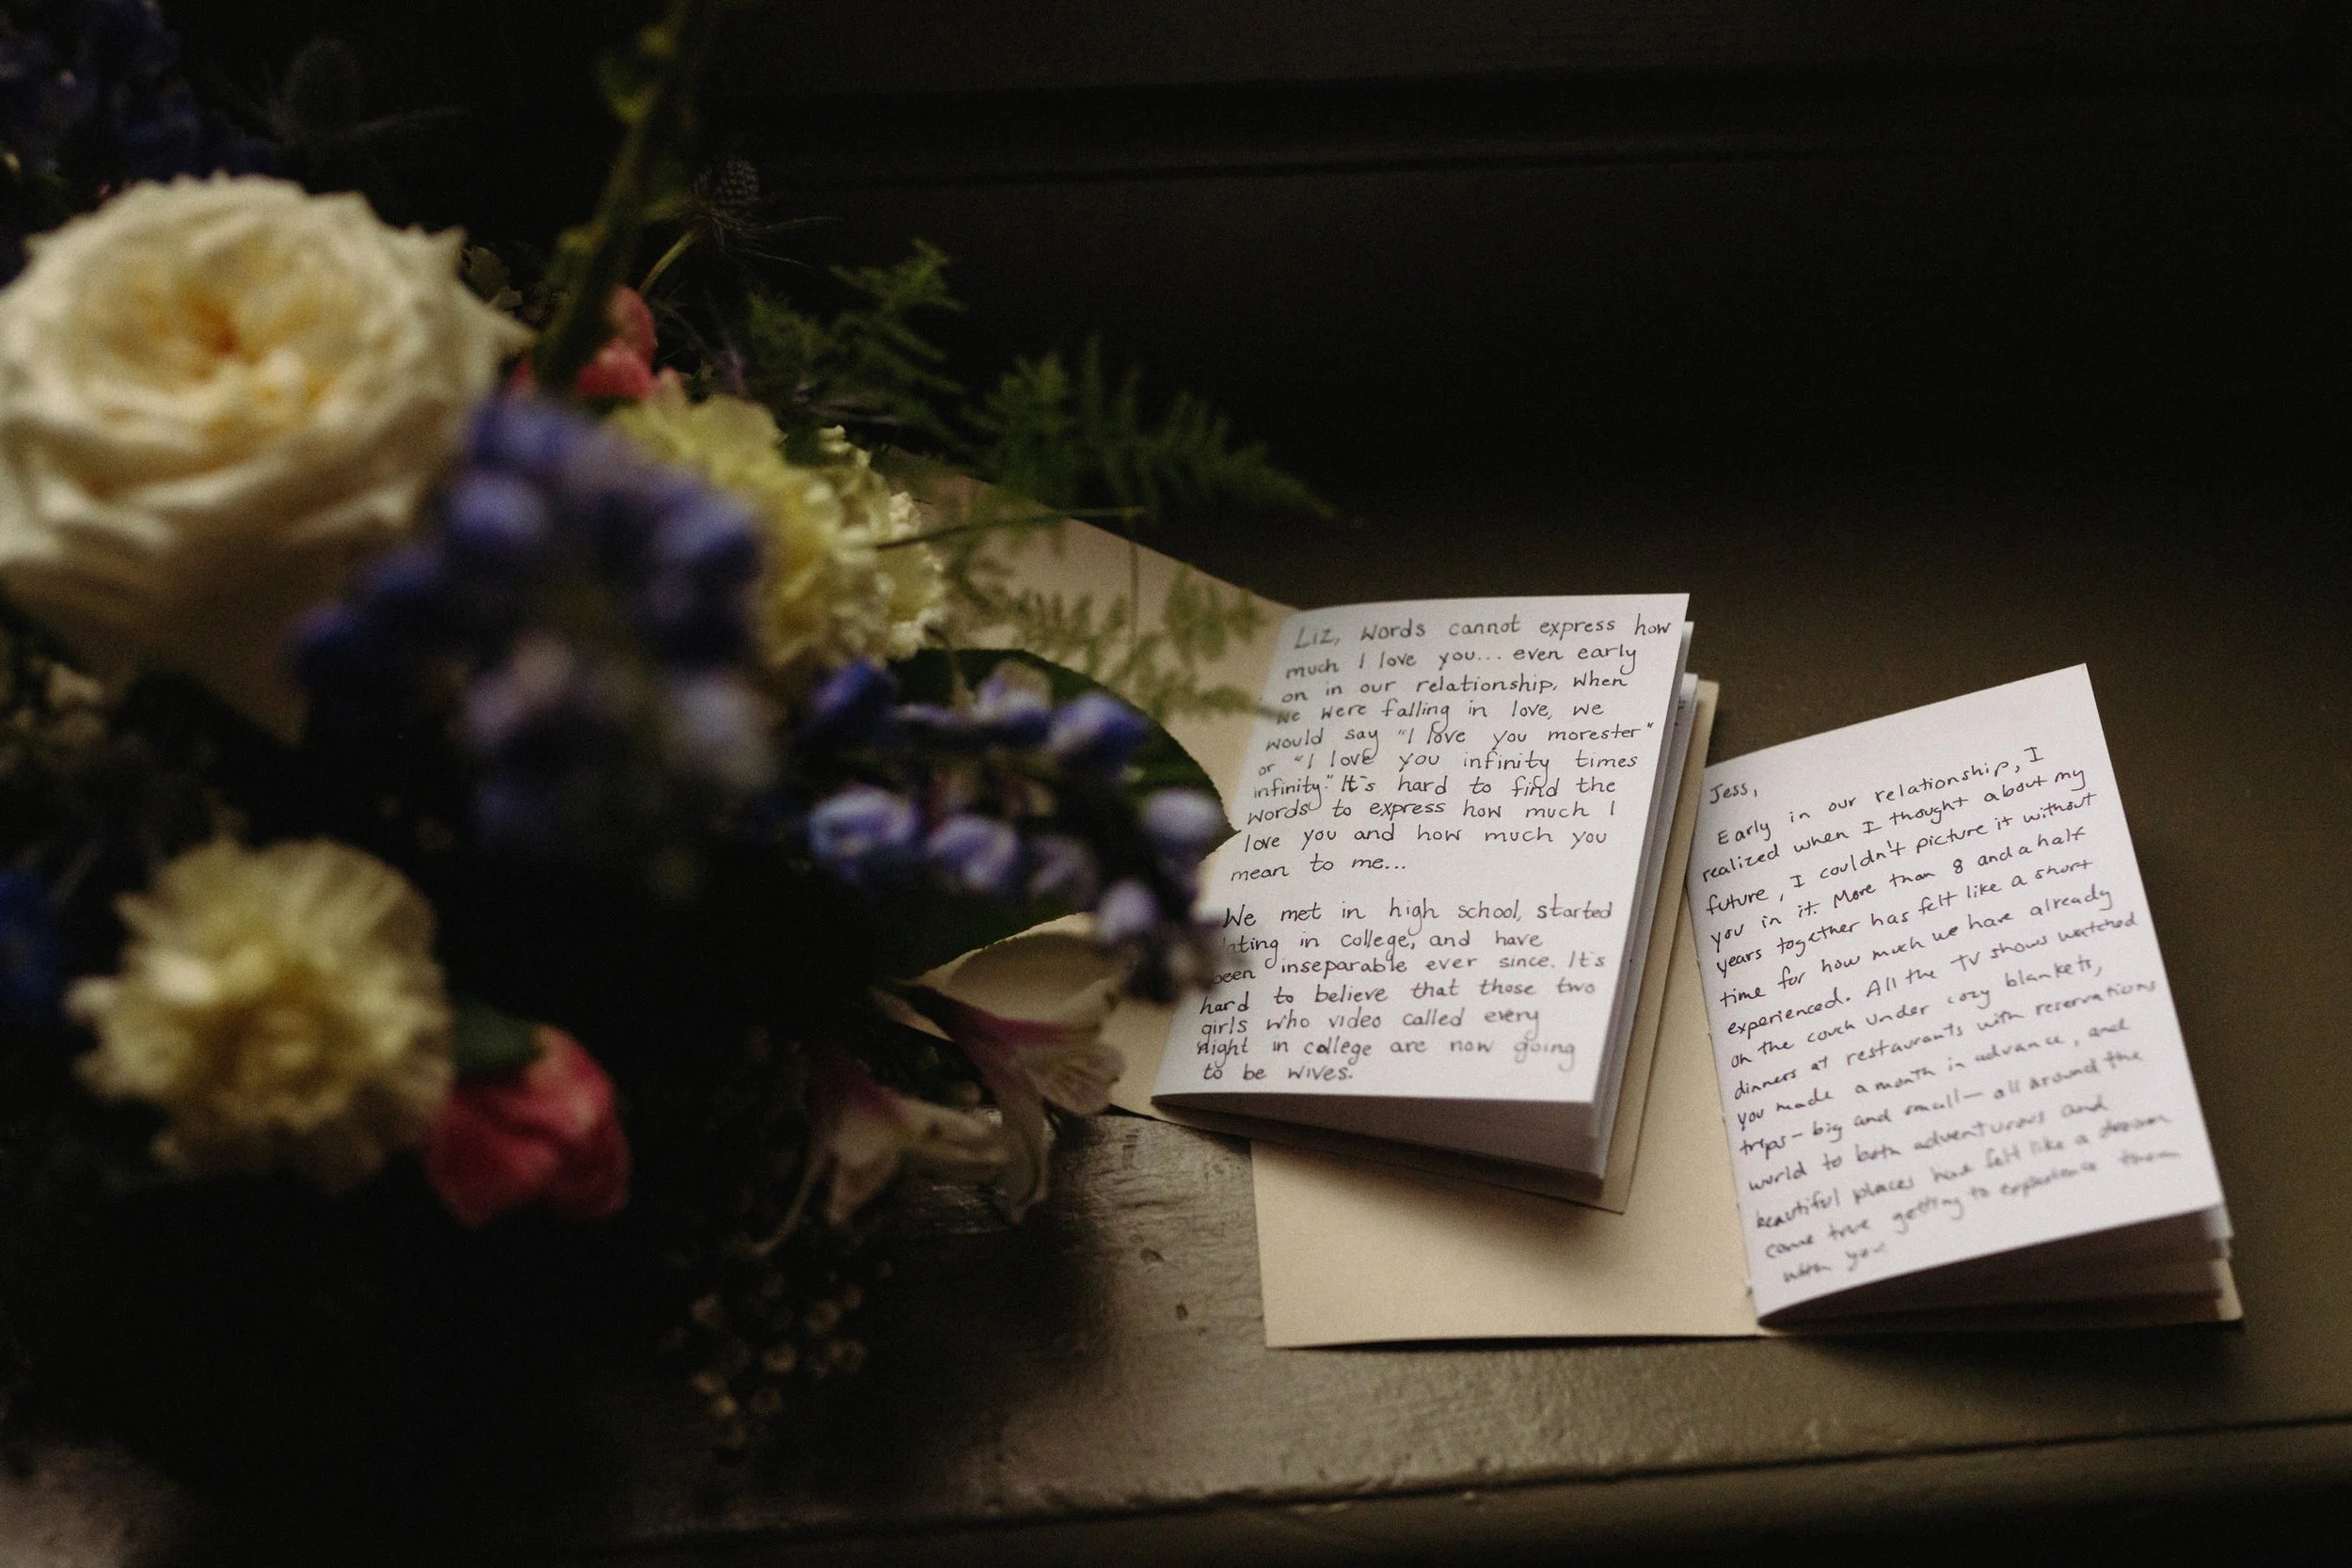 Liz, words cannot express how
much I love you... even early
on in our relationship, when
we were falling in love, we
would say "I love you morester"
or "I love you infinity times
infinity." It's hard to find the
words to express how much I
love you and how much you
mean to me...
We met in high school, started
ating in college, and have
been inseparable ever since. It's
hard to believe that those two
girls who video called every
night in college are now going
to be wives.
Jess,
Early in our relationship, I
realized when I thought about my
future, I couldn't picture it without
you in it. More than 8 and a half
years together has felt like a short
time for how much we have already
experienced. All the TV shows watched
on the couch under cozy blankets,
dinners at restaurants with reservations
you made a month in advance, and
trips- big and small- all around the
world to both adventurous and
beautiful places have felt like a dream
come true getting to experience them
with you.